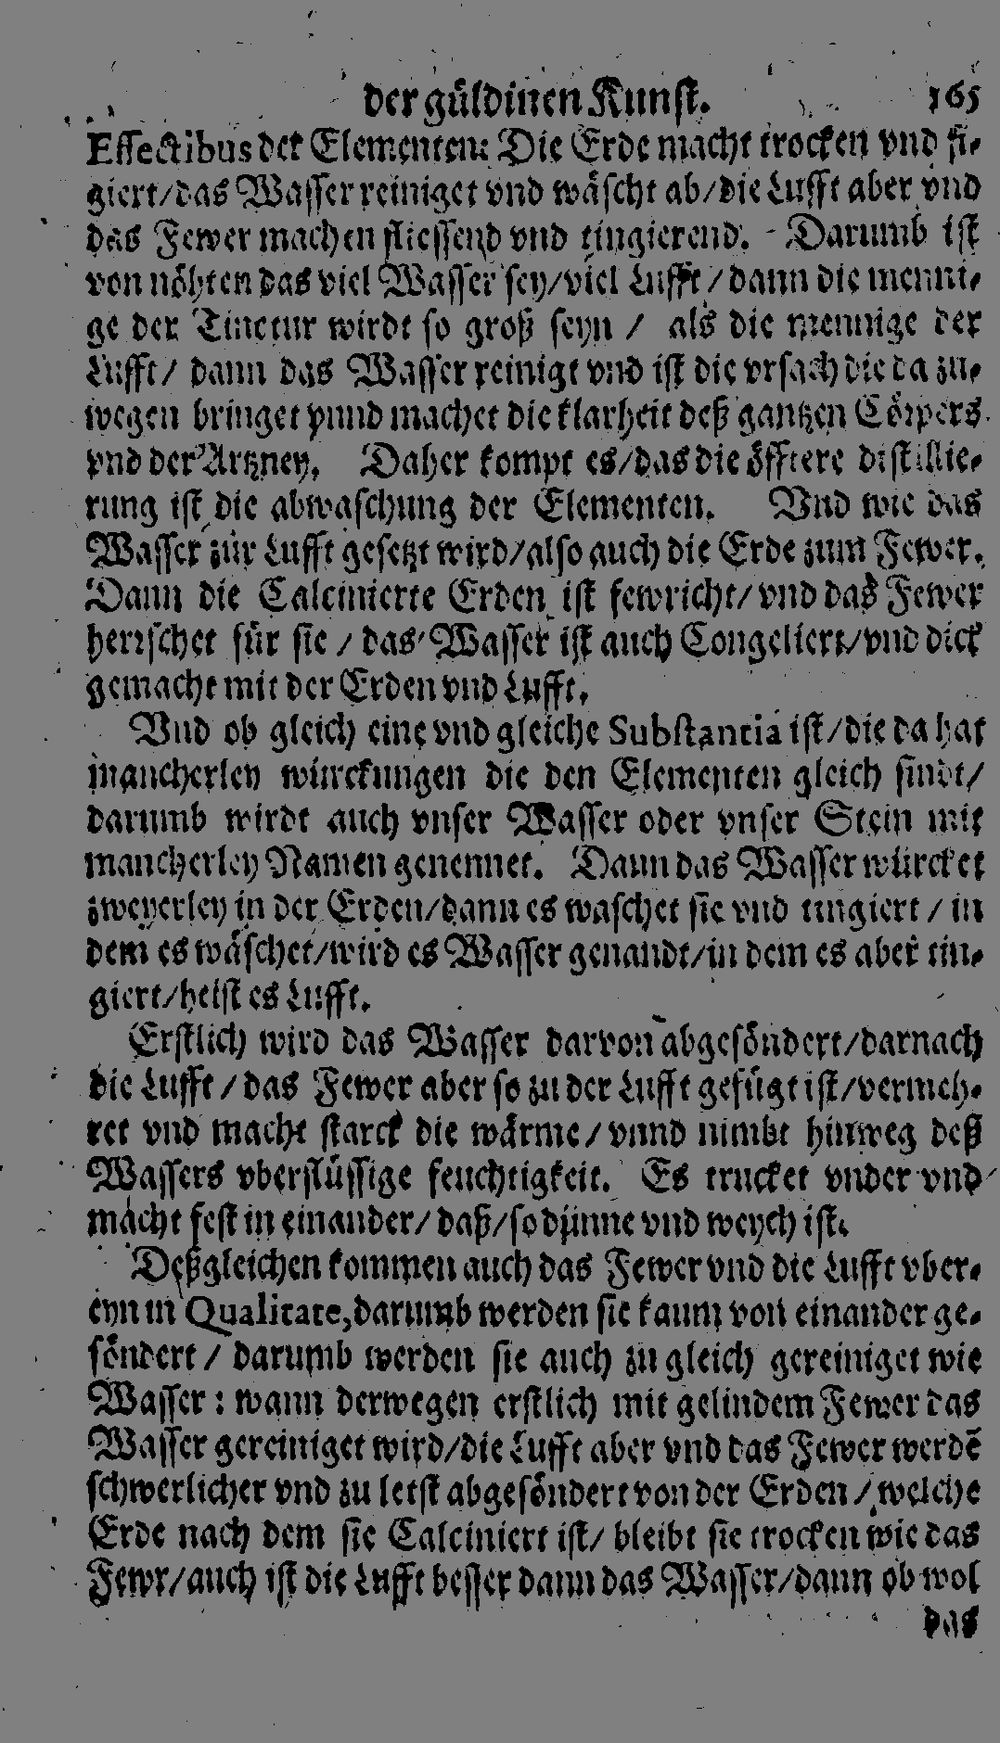 der güldinen Kunst. 165
Effectibus der Elementen: Die Erde macht trocken vnd fi-
giert/das Wasser reiniget vnd wäscht ab/die Lufft aber vnd
das Fewer machen fliessend vnd tingierend. Darumb ist
von nöhten das viel Wasser sey/viel Lufft/dann die menni-
ge der Tinctur wirdt so groß seyn / als die mennige der
Lufft/ dann das Wasser reinigt vnd ist die vrsach die da zu-
wegen bringet vnnd machet die klarheit deß gantzen Cörpers
vnd der Artzney. Daher kompt es/das die öfftere distillie-
rung ist die abwaschung der Elementen. Vnd wie das
Wasser zur Lufft gesetzt wird/also auch die Erde zum Fewer.
Dann die Calcinierte Erden ist fewricht/vnd das Fewer
herrschet für sie / das Wasser ist auch Congeliert/vnd dick
gemacht mit der Erden vnd Lufft.
Vnd ob gleich eine vnd gleiche Substantia ist/die da hat
mancherley würckungen die den Elementen gleich sindt/
darumb wirdt auch vnser Wasser oder vnser Stein mit
mancherley Namen genennet. Dann das Wasser würcket
zweyerley in der Erden/dann es waschet sie vnd tingiert / in
dem es wäschet/wird es Wasser genandt/in dem es aber tin-
giert/heist es Lufft.
Erstlich wird das Wasser darvon abgesöndert/darnach
die Lufft / das Fewer aber so zu der Lufft gefügt ist/vermeh-
ret vnd macht starck die wärme/ vnnd nimbt hinweg deß
Wassers vberflüssige feuchtigkeit. Es trucket vnder vnd
macht fest in einander/daß/so dünne vnd weych ist.
Deßgleichen kommen auch das Fewer vnd die Lufft vber-
eyn in Qualitate,darumb werden sie kaum von einander ge-
söndert / darumb werden sie auch zu gleich gereiniget wie
Wasser: wann derwegen erstlich mit gelindem Fewer das
Wasser gereiniget wird/die Lufft aber vnd das Fewer werdē
schwerlicher vnd zu letst abgesöndert von der Erden / welche
Erde nach dem sie Calciniert ist/ bleibt sie trocken wie das
Fewr/auch ist die Lufft besser dann das Wasser/dann ob wol
das